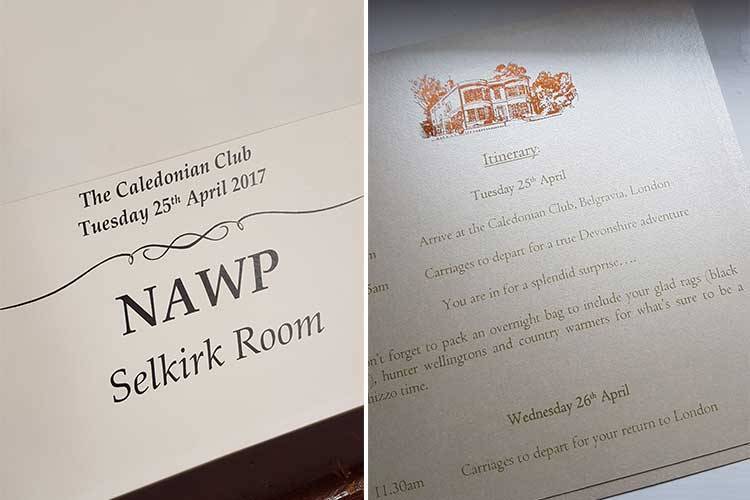 The Caledonian Club
Tuesday 25th April 2017
NAWP
Selkirk Room
Itinerary:
Tuesday 25th April
Arrive at the Caledonian Club, Belgravia, London
Carriages to depart for a true Devonshire adventure
You are in for a splendid surprise….
forget to pack an overnight bag to include your glad rags (black
), hunter wellingtons and country warmers for what's sure to be a
time.
Wednesday 26th April
11.30am Carriages to depart for your return to London